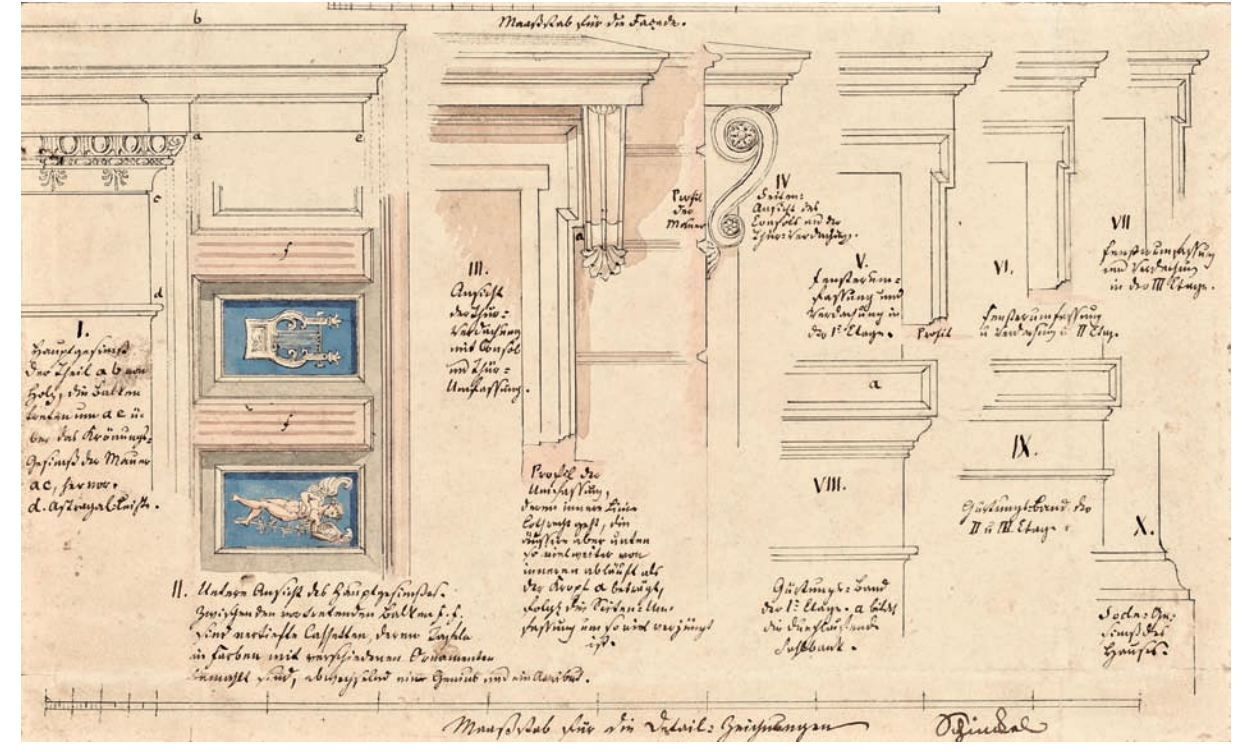 Maaßstab für die Façade.
b
a
e
c
d
f
f
I.
Hauptgesims
Der Theil a b von
Holz, die Balken
treten um a e ü-
ber das Krönungs-
Gesims der Mauer
a c, hervor.
d. Astragal-Leiste.
II. Untere Ansicht des Hauptgesimses.
Zwischen den vortretenden Balken f. f.
sind vertiefte Cassetten, deren Tafeln
in Farben mit verschiedenen Ornamenten
bemahlt sind, abwechselnd einer Genius und ein Attribut.
III.
Ansicht
der Thür-
Verdachung
mit Consol
und Thür-
Umfassung.
a
Profil der
Umfassung,
deren innere Linie
lothrecht geht, die
äussere aber unten
so viel weiter von
inneren abläuft als
der Kropf a beträgt,
folgl. die Seiten-Um-
fassung um so viel verjüngt
ist.
Profil
der
Mauer
IV
Seiten-
Ansicht des
Consols an der
Thür-Verdachung.
V.
Fensterum-
fassung und
Verdachung in
der 1ᵗ Etage.
Profil
VI.
Fensterumfassung
u Verdachung d. II Etag.
VII
Fensterumfassung
und Verdachung
in der III Etage.
a
VIII.
Gurtungs-Band
der 1ᵗ Etage. a bildet
die durchlaufende
Sohlbank.
IX.
Gurtungsband der
II u III. Etage.
X.
Sockel-Ge-
sims des
Hauses.
Maaßstab für die Detail-Zeichnungen
Schinkel